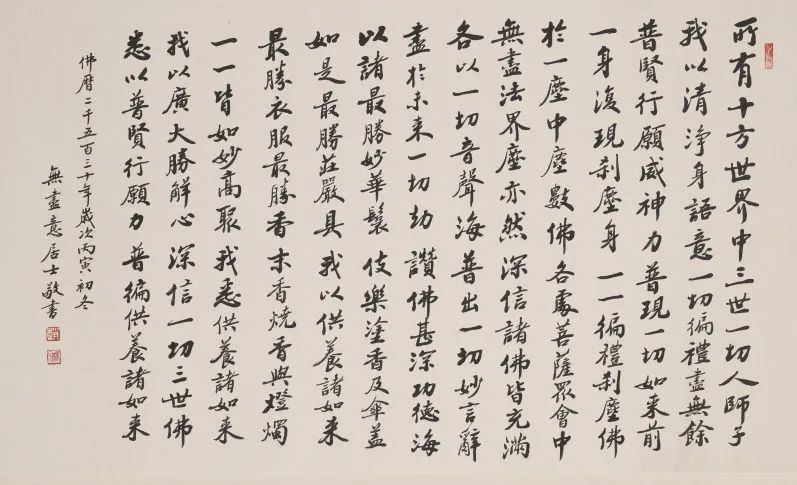 所有十方世界中三世一切人師子
我以清淨身語意一切徧禮盡無餘
普賢行願威神力普現一切如来前
一身復現剎塵身一一徧禮剎塵佛
於一塵中塵數佛各處菩薩眾會中
無盡法界塵亦然深信諸佛皆充滿
各以一切音聲海普出一切妙言辭
盡於未来一切劫讚佛甚深功德海
以諸最勝妙華鬘伎樂塗香及傘蓋
如是最勝莊嚴具我以供養諸如来
最勝衣服最勝香末香燒香與燈燭
一一皆如妙高聚我悉供養諸如来
我以廣大勝解心深信一切三世佛
悉以普賢行願力普徧供養諸如来
佛曆二千五百三十年歲次丙寅初冬
無盡意居士敬書